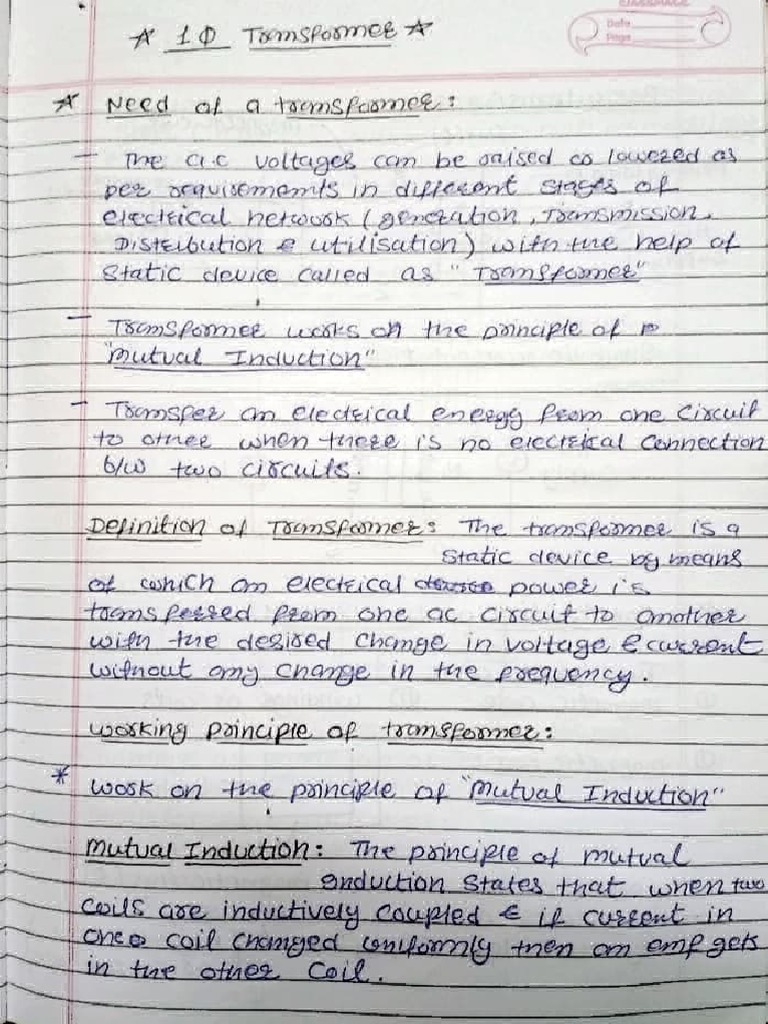 ☆ 1Φ Transformer ☆
Date
Page
☆ Need of a transformer:
- The a.c voltages can be raised co lowered as
per requirements in different stages of
electrical network (generation, Transmission,
Distribution & utilisation) with the help of
static device called as "Transformer"
- Transformer works on the principle of
"Mutual Induction"
- Transfer an electrical energy from one circuit
to other when there is no electrical connection
b/w two circuits.
Definition of Transformer: The transformer is a
static device by means
of which an electrical power is
transferred from one ac circuit to another
with the desired change in voltage & current
without any change in the frequency.
working principle of transformer:
* work on the principle of "Mutual Induction"
Mutual Induction: The principle of mutual
induction states that when two
coils are inductively coupled & if current in
one coil changed uniformly then an emf gets
in the other coil.